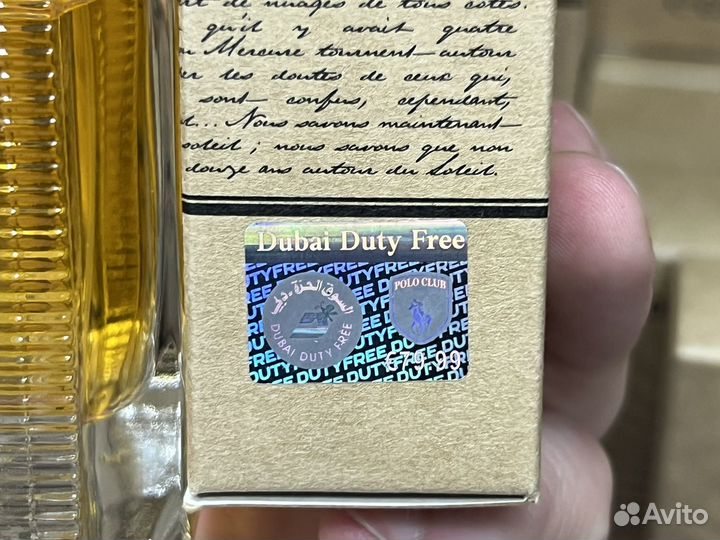 de nuages de tous cotés.
qu'il y avait quatre
Mercure tournent autour
les doutes de ceux qui,
sont confus, cependant,
... Nous savons maintenant
soleil ; nous savons que non
douze ans autour du Soleil.
Dubai Duty Free
السوق الحرة دبي
DUBAI DUTY FREE
POLO CLUB
DUTYFREE DUTYFREE
€79.99
Avito